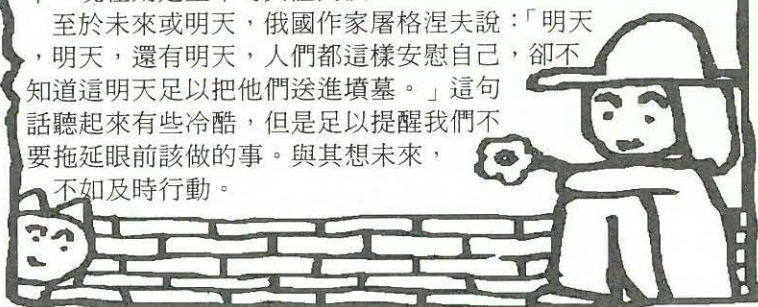 至於未來或明天，俄國作家屠格涅夫說：「明天
，明天，還有明天，人們都這樣安慰自己，卻不
知道這明天足以把他們送進墳墓。」這句
話聽起來有些冷酷，但是足以提醒我們不
要拖延眼前該做的事。與其想未來，
不如及時行動。